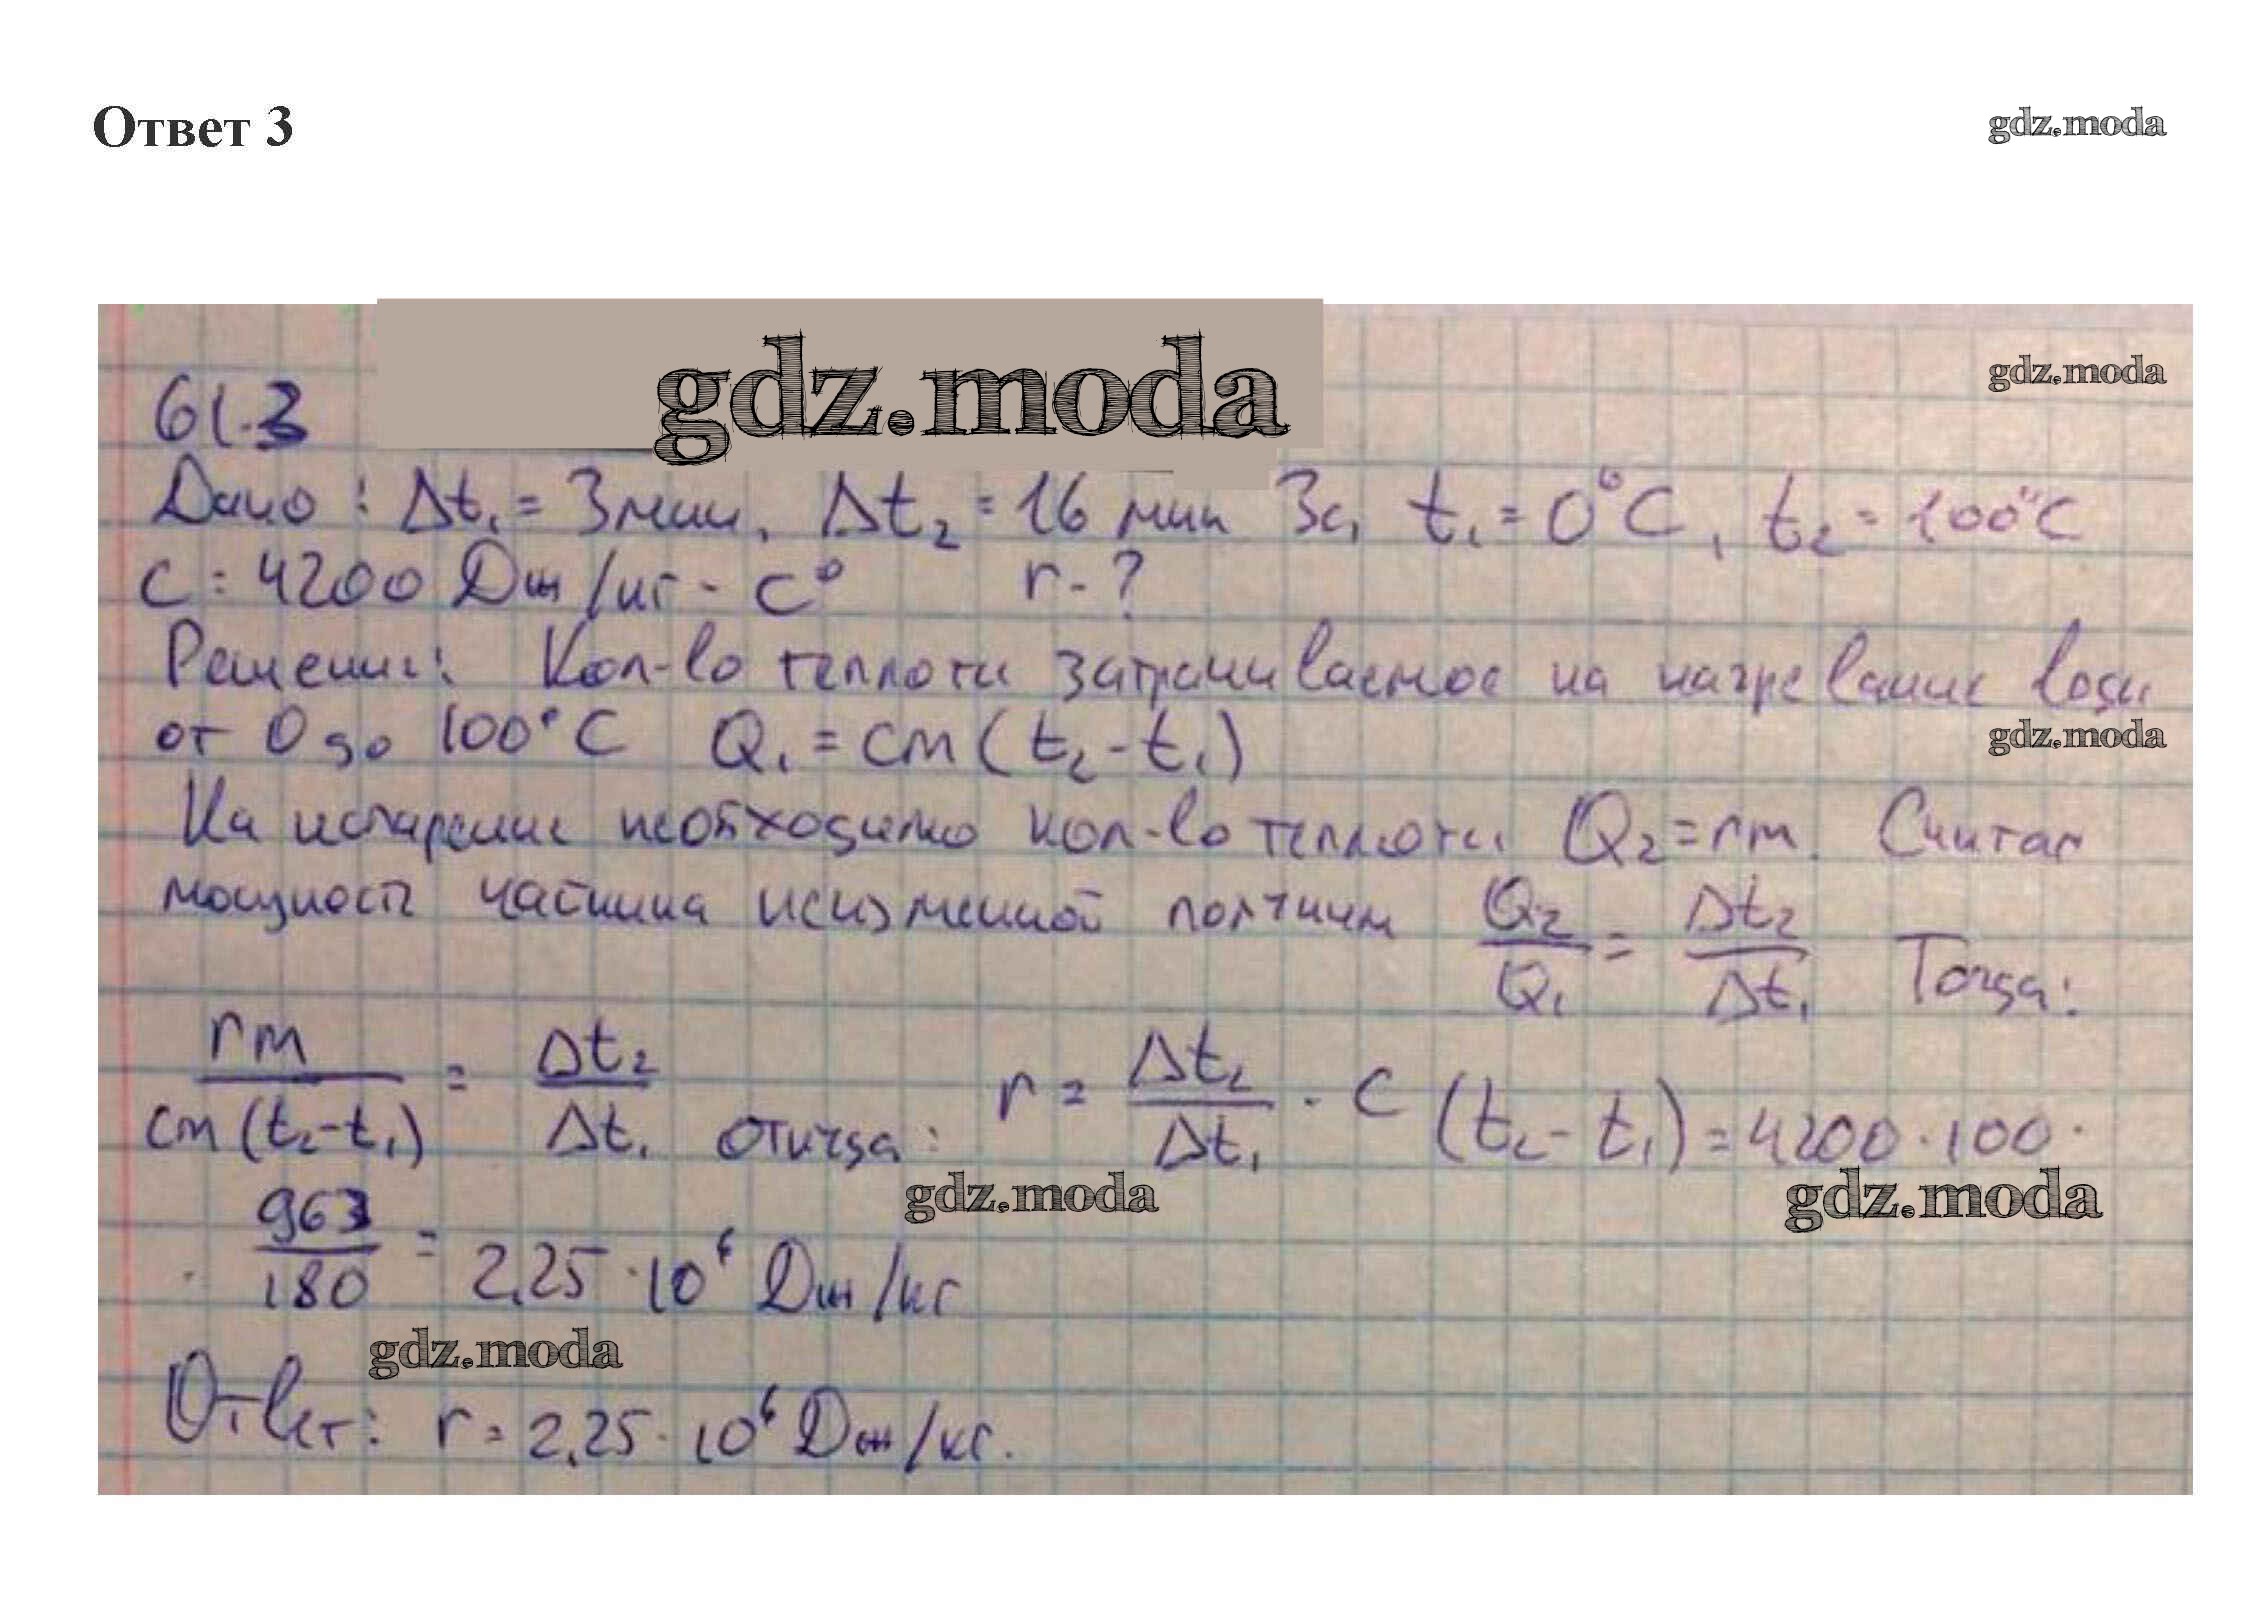 Ответ 3
gdz.moda
gdz.moda
gdz.moda
61.3
Дано: Δt₁ = 3 мин, Δt₂ = 16 мин 3с, t₁ = 0°C, t₂ = 100°C
c = 4200 Дж/кг · C° r - ?
Решение: Кол-во теплоты затрачиваемое на нагревание воды
от 0 до 100°C Q₁ = cm(t₂ - t₁)
gdz.moda
На испарение необходимо кол-во теплоты Q₂ = rm. Считая
мощность чайника неизменной получим Q₂/Q₁ = Δt₂/Δt₁ Тогда:
rm/cm(t₂-t₁) = Δt₂/Δt₁ откуда: r = Δt₂/Δt₁ · c (t₂ - t₁) = 4200 · 100 ·
gdz.moda
gdz.moda
· 963/180 = 2,25 · 10⁶ Дж/кг
gdz.moda
Ответ: r = 2,25 · 10⁶ Дж/кг.